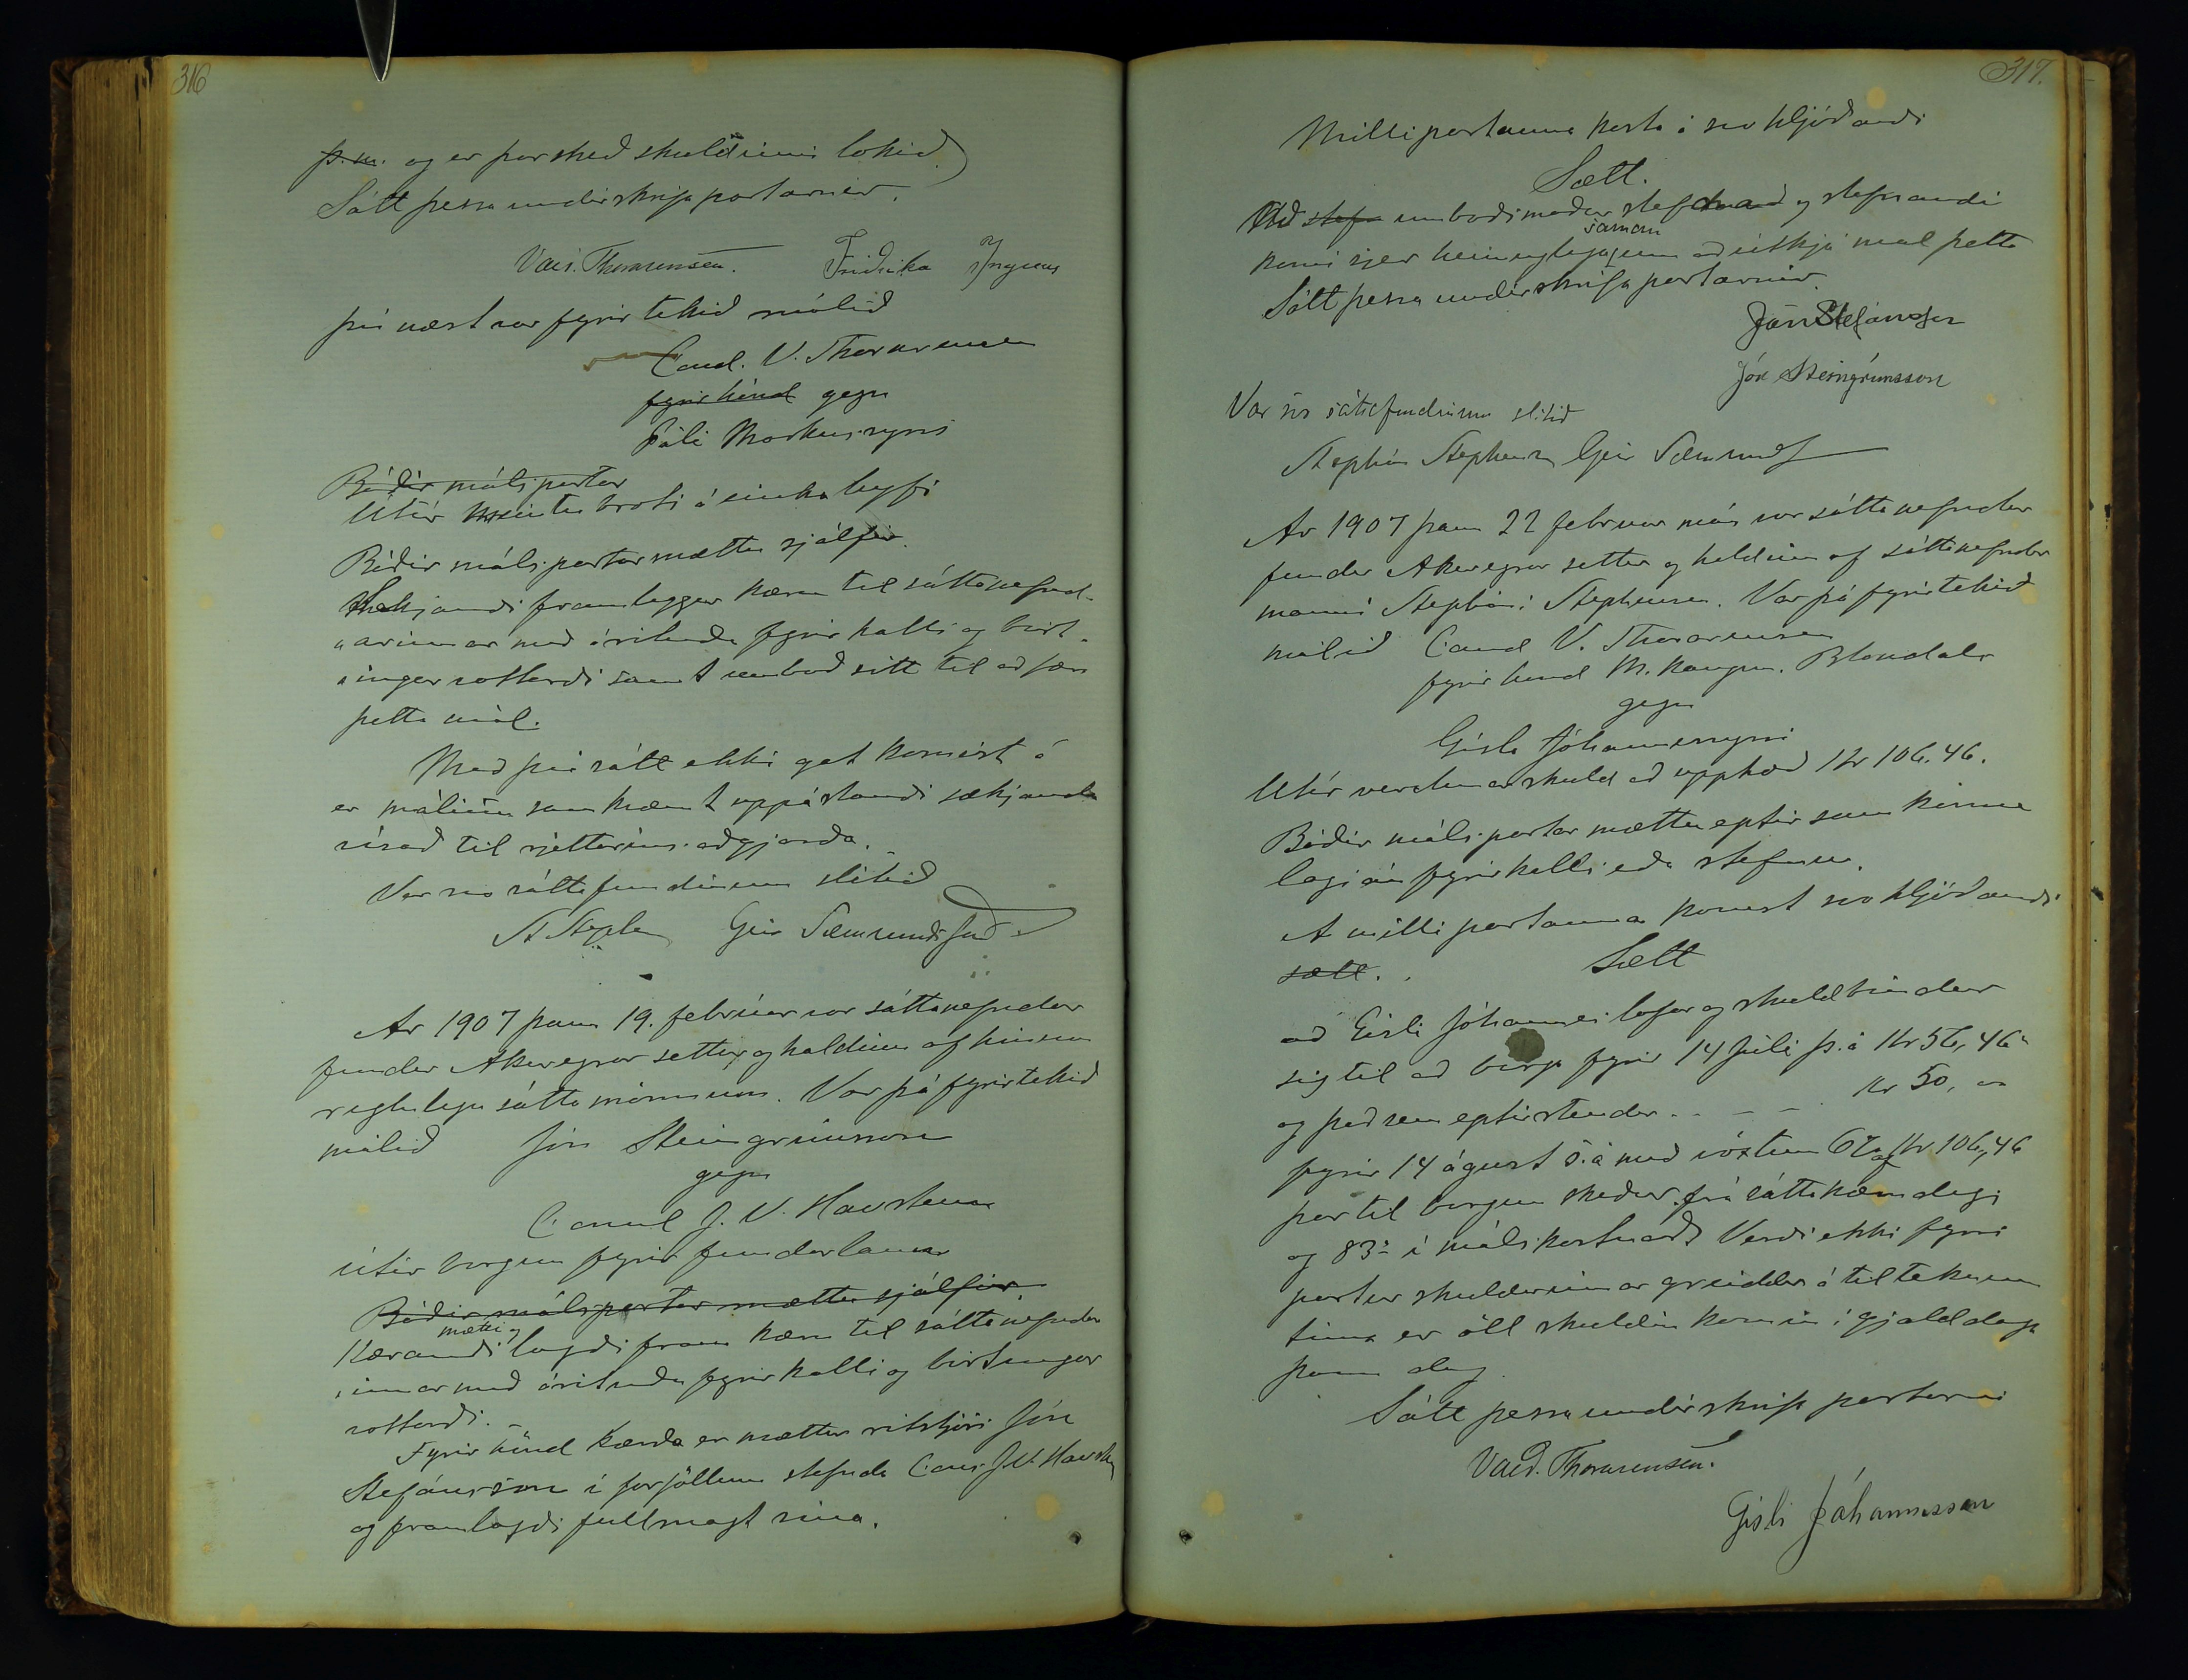 316
þ.m. og er þar með skuldinni lokið)
Sátt þessa undirskrifa partarnir.
Vald. Thorarensen. Friðrika
því næst var fyrir tekið málið
Cand. V. Thorarensen
fyrir hönd gegn
Páli Markússyni
Báðir málspartar
Útúr broti á einkaleyfi
Báðir málspartar mættu sjálfir.
Sækjandi framleggur kæru til sáttanefnd-
"arinnar með árituðu fyrirkalli og birt-
"ingarvottorði samt umboð sitt til að færa
þetta mál.
Með því sátt ekki gat komist á
er málinu samkvæmt uppástandi sækjanda
vísað til rjettarins aðgjörða.
Var svo sáttafundinum slitið
St Steph Geir Sæmundsson
Ár 1907 þann 19. febrúar var sáttanefndar
fundur Akureyrar settur og haldinn af hinum
reglulegu sáttamönnum. Var þá fyrirtekið
málið Jón Steingrímsson
gegn
Consul J. V. Havsteen
útúr borgun fyrir fundarlaun
Báðir málspartar mættu sjálfir.
mætti og
Kærandi lagði fram kæru til sáttanefndar
"innar með árituðu fyrirkalli og birtingar
vottorði.
Fyrir hönd kærða er mættur ritstjóri Jón
Stefánsson í forföllum stefnda Cons J.V. Havsteen
og framlagði fullmagt sína.
317.
Milli partanna komst á svo hljóðandi
Sætt.
Að stefn umboðsmaður stefnda og stefnandi
saman
komi sjer heimuglega um að útkljá mál þetta
Sátt þessa undirskrifa partarnir.
Jón Stefánsson
Jón Steingrímsson
Var svo sáttafundinum slitið
Stephán Stephensen Geir Sæmundss
Ár 1907 þann 22 februar mán var sáttanefndar
fundur Akureyrar settur og haldinn af sáttanefndar
manni Stepháni Stephensen. Var þá fyrirtekið
málið Cand V. Thorarensen
fyrir hönd M. Kaupm. Blöndals
gegn
Gísla Jóhannessyni
Útúr verslunarskuld að upphæð Kr 106.46.
Báðir málspartar mættu eptir samkomu
lagi án fyrirkalli eða stefnu.
Á milli partanna komst svo hljóðandi
sætt. Sætt
að Gísli Jóhannes lofar og skuldbindur
sig til að borga fyrir 14 Júli þ.á Kr 56,46
og það sem eptirstendur . . - - - Kr 50,00
fyrir 14 ágúst s.á með vöxtum 6% af Kr 106,46
þar til borgun skeður frá sáttakærudegi
og 83 í málskostnað. Verði ekki fyrri
partur skuldarinnar greiddur á tilteknum
tíma er öll skuldin komin í gjalddaga
þann dag
Sátt þessa undirskrifa partarnir
Vald. Thorarensen.
Gísli Jóhannesson